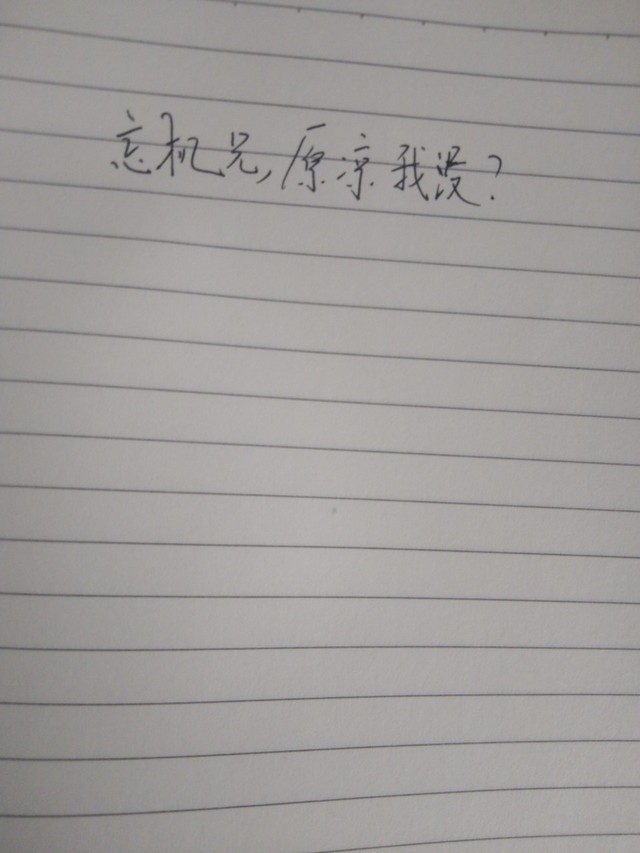 忘机兄，原凉我没？